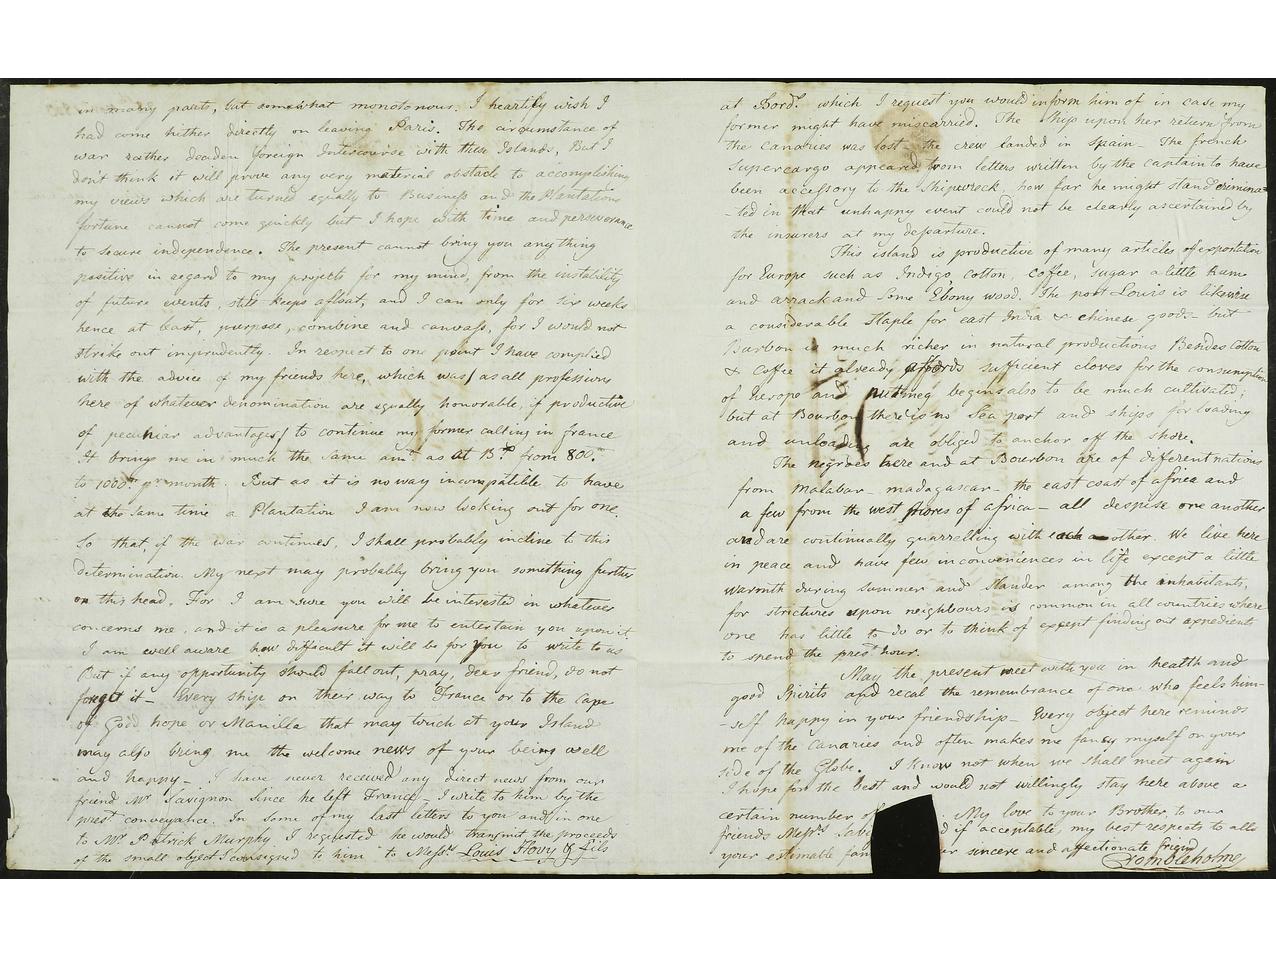 in many parts, but somewhat monotonous. I heartily wish I
had come hither directly on leaving Paris. The circumstance of
war rather deaden foreign Intercourse with these Islands, But I
don't think it will prove any very material obstacle to accomplishing
my views which are turned equally to Business and the Plantations
fortune cannot come quickly but I hope with time and perseverance
to secure independence. The present cannot bring you anything
positive in regard to my projects for my mind, from the instability
of future events, still keeps afloat, and I can only for six weeks
hence at least, purpose, combine and canvass, for I would not
strike out imprudently. In respect to one point I have complied
with the advice of my friends here, which was (as all professions
here of whatever denomination are equally honorable, if productive
of peculiar advantages) to continue my former calling in france
It brings me in much the same amt. as at Bx. from 800.
to 1000. pr month. But as it is no way incompatible to have
at the same time a Plantation I am now looking out for one.
So that, if the war continues, I shall probably incline to this
determination. My next may probably bring you something further
on this head. For I am sure you will be interested in whatever
concerns me, and it is a pleasure for me to entertain you upon it
I am well aware how difficult it will be for you to write to us
But if any opportunity should fall out, pray, dear friend, do not
forget it – Every ship on their way to France or to the Cape
of Good hope or Manilla that may touch at your Island
may also bring me the welcome news of your being well
and happy – I have never received any direct news from our
friend Mr Savignon since he left France – I write to him by the
prest conveyance. In some of my last letters to you and in one
to Mr Patrick Murphy I requested he would transmit the proceeds
of the small object I consigned to him to Messrs Louis Hovy & fils
at Bord. which I request you would inform him of in case my
former might have miscarried. The ship upon her return from
the Canaries was lost – the crew landed in Spain – The french
Supercargo appeared from letters written by the captain to have
been accessory to the shipwreck, how far he might stand crimina-
-ted in that unhappy event could not be clearly ascertained by
the insurers at my departure.
This island is productive of many articles of exportation
for Europe such as Indigo Cotton, coffee, sugar a little
and arrack and some Ebony wood. The port Louis is likewise
a considerable Staple for east India & chinese goods – but
Burbon is much richer in natural productions Besides Cotton
& Coffee it already affords sufficient cloves for the consumption
of Europe and nutmeg begins also to be much cultivated;
but at Bourbon there is no Sea port and ships for loading
and unloading are obliged to anchor off the shore.
The negroes here and at Bourbon are of different nations
from Malabar – madagascar – the east coast of africa and
a few from the west shores of africa – all despise one another
and are continually quarrelling with each other. We live here
in peace and have few inconveniences in life except a little
warmth during summer and slander among the inhabitants,
for strictures upon neighbours is common in all countries where
one has little to do or to think of except finding out expedients
to spend the prest hour.
May the present meet with you in health and
good Spirits and recal the remembrance of one who feels him-
-self happy in your friendship – Every object here reminds
me of the Canaries and often makes me fancy myself on your
side of the Globe. I know not when we shall meet again
I hope for the best and would not willingly stay here above a
certain number of My love to your Brother, to our
friends Messrs d if acceptable, my best respects to all
your estimable fam ur sincere and affectionate friend